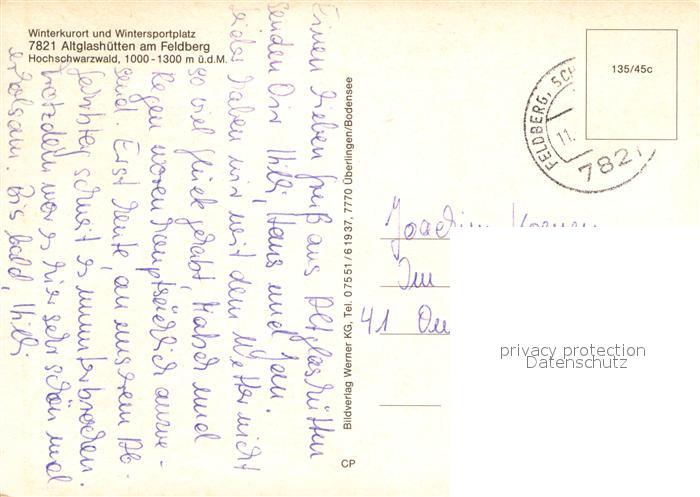 Winterkurort und Wintersportplatz
7821 Altglashütten am Feldberg
Hochschwarzwald, 1000 - 1300 m ü.d.M.
Einen lieben Gruß aus Altglashütten
senden Dir Hilli, Hans und Jan.
Leider haben wir mit dem Wetter nicht
so viel Glück gehabt, Nebel und
Regen waren hauptsächlich anwe-
send. Erst heute, an unserem Ab-
schneit es ununterbrochen.
Trotzdem war es hier sehr schön und
erholsam. Bis bald, Hilli
Bildverlag Werner KG, Tel. 07551/61937, 7770 Überlingen/Bodensee
CP
135/45c
FELDBERG, SCH
11.
7821
Joachim
Im
41 Du
privacy protection
Datenschutz